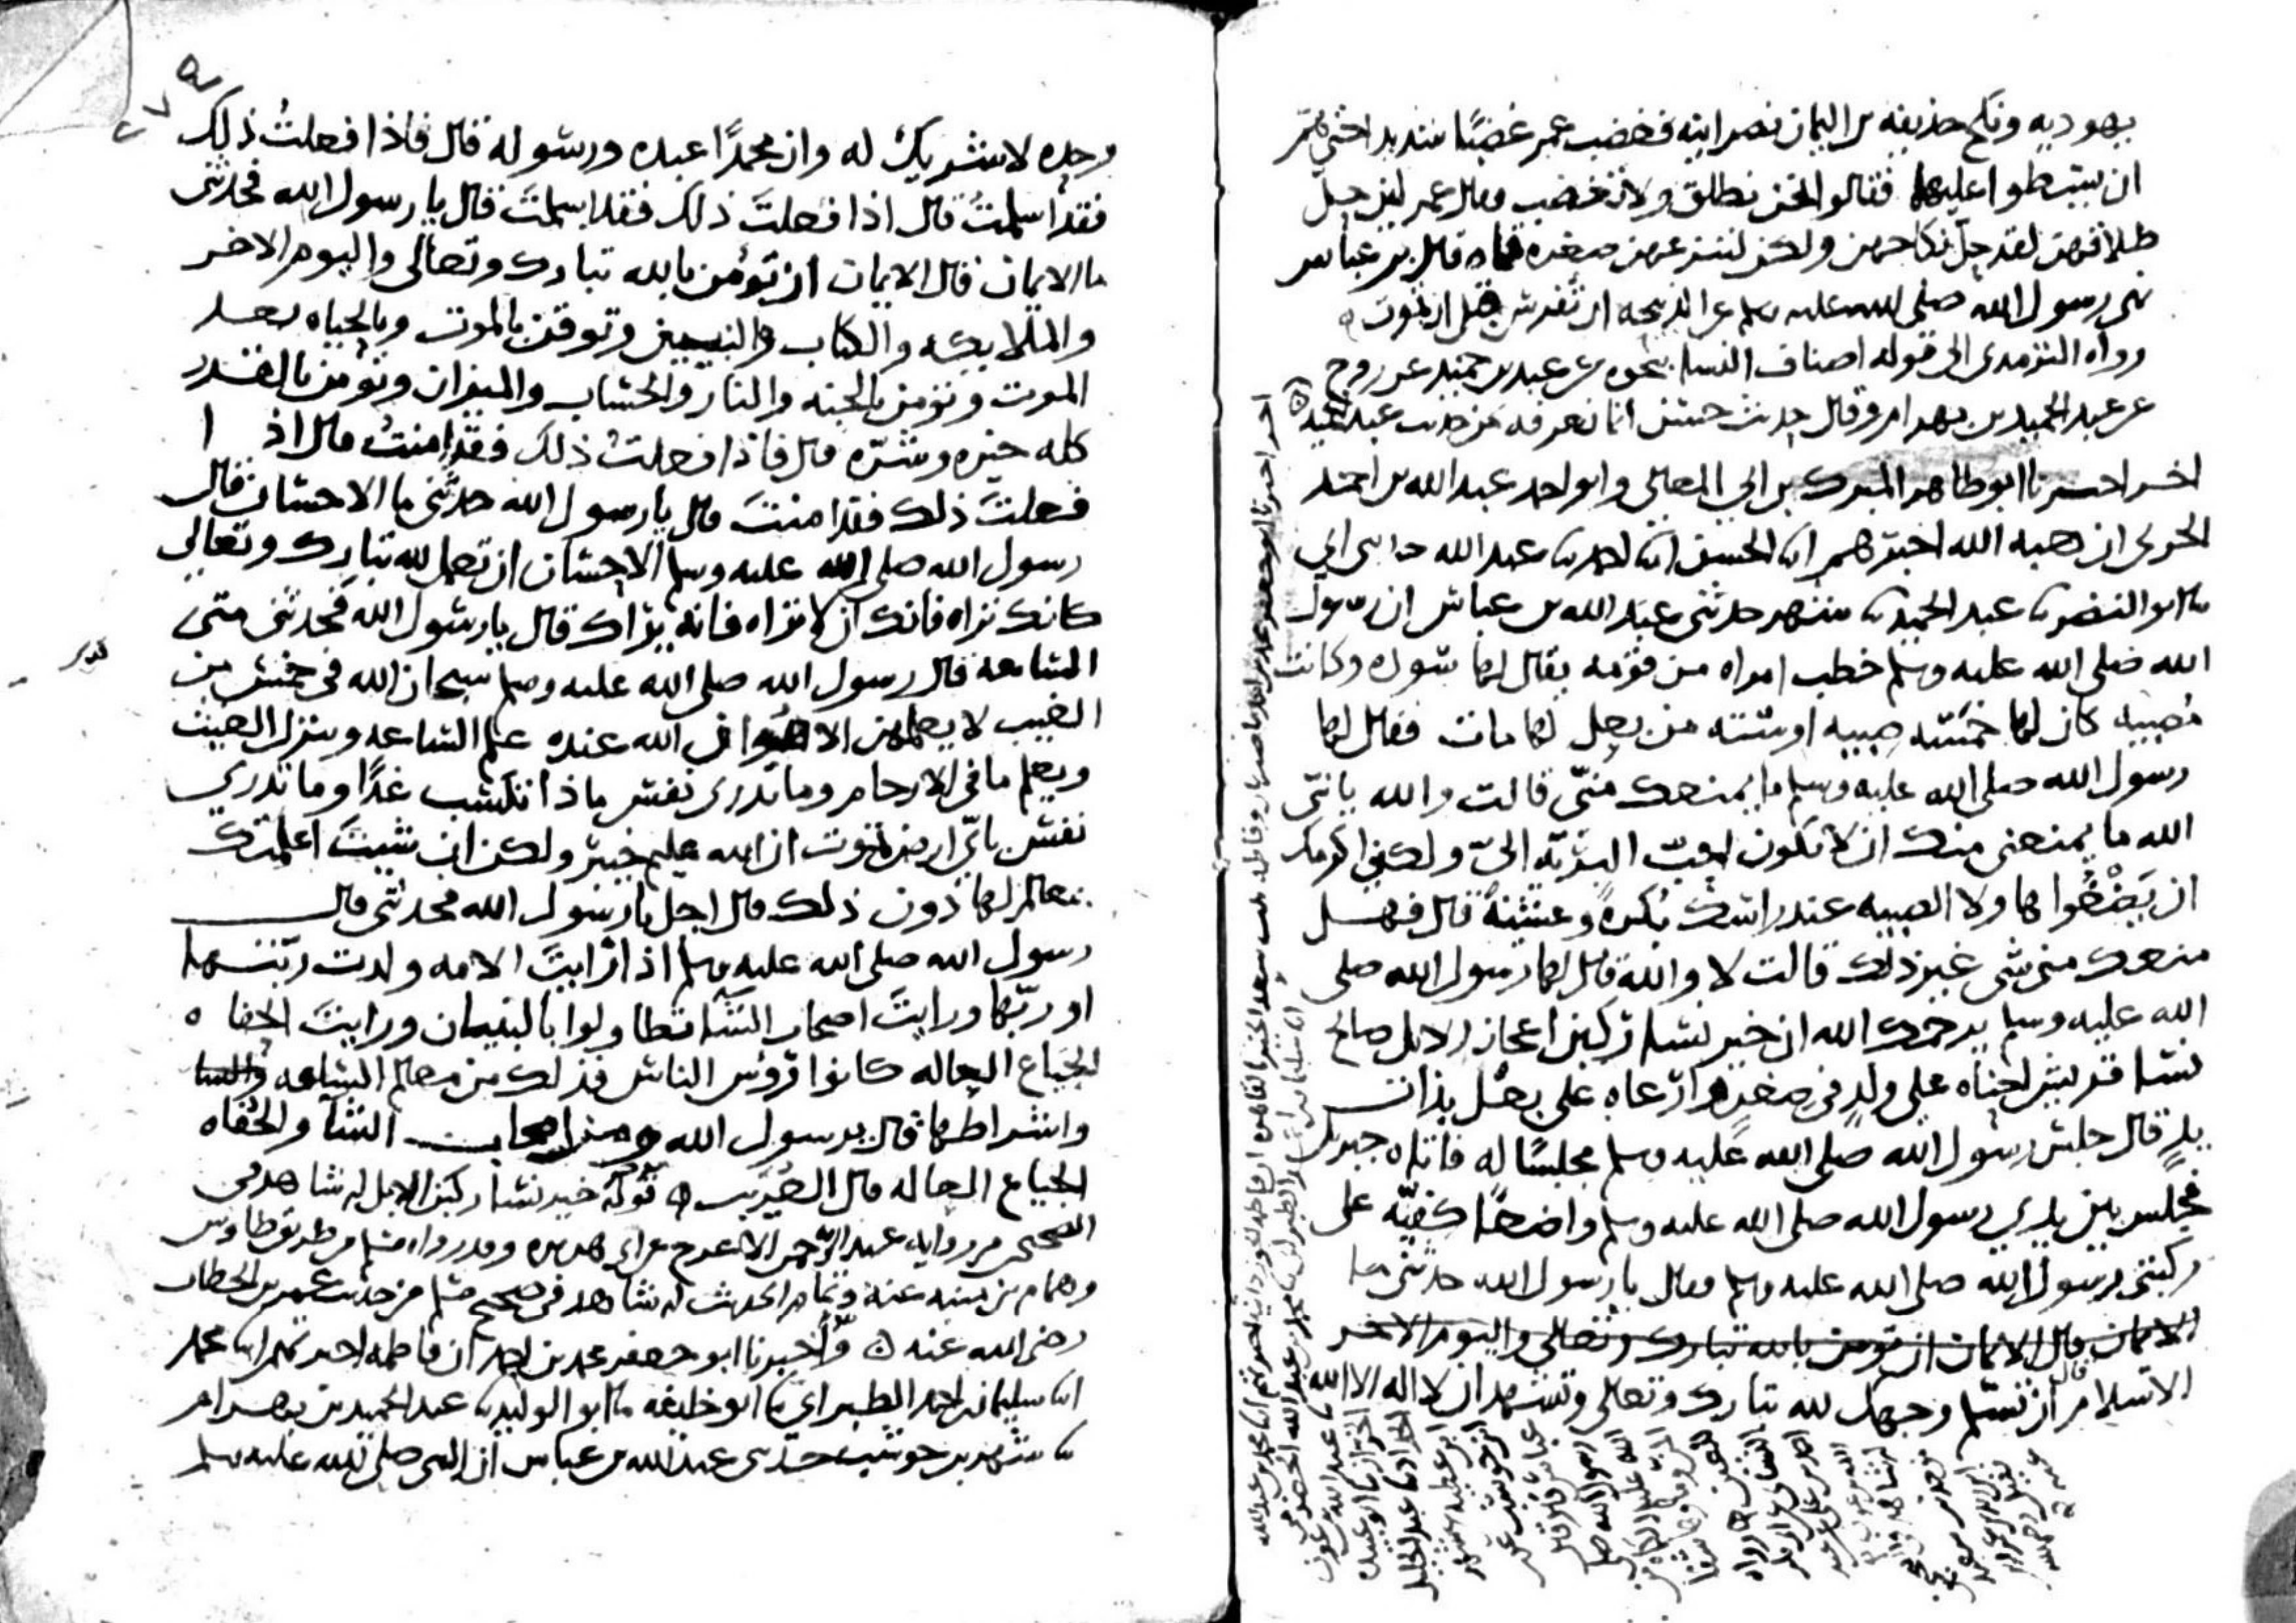 يهوديه ونكح حذيفه بن اليمان نصرانيه فغضب عمر غضبًا شديدا حتى هم
ان يسطو عليهما فقالوا نحن نطلق ولا تغضب فقال عمر لين حل
طلاقهن لقد حل نكاحهن ولكن لننزعهن صغره قماه قال بن عباس
نهى رسول الله صلى الله عليه وسلم عن الذبيحه ان تفرس قبل ان تموت
رواه الترمذي الى قوله اصناف النسا بنحوه عن عبد بن حميد عن روح
عن عبد الحميد بن بهرام وقال حديث حسن انما نعرفه من حديث عبد الحميد
اخر اخبرنا ابو طاهر المبرك بن ابي المعالي وابو احمد عبد الله بن احمد
الحربي ان هبه الله اخبرهم انا الحسن انا احمد نا عبد الله حدثني ابي
نا ابو النضر نا عبد الحميد نا شهر حدثني عبد الله بن عباس ان رسول
الله صلى الله عليه وسلم خطب امراه من قومه يقال لها سوده وكانت
مُصبيه كان لها خمسه صبيه او سته من بعل لها مات فقال لها
رسول الله صلى الله عليه وسلم ما يمنعك منّي قالت والله يا نبي
الله ما يمنعني منك ان لا تكون احبّ البريّه اليّ ولكني اكرمك
ان يَضغُوا ها ولا الصبيه عند راسك بُكرةً وعشيّة قال فهل
منعك مني شي غير ذلك قالت لا والله قال لها رسول الله صلى
الله عليه وسلم يرحمك الله ان خير نسا ركبن اعجاز الابل صالح
نسا قريش احناه على ولدٍ في صغره وارعاه على بعل بذات
يدٍ قال جلس رسول الله صلى الله عليه وسلم مجلسًا له فاتاه جبريل
فجلس بين يدي رسول الله صلى الله عليه وسلم واضعًا كفيّه على
ركبتي رسول الله صلى الله عليه وسلم فقال يا رسول الله حدثني ما
الايمان قال الايمان ان تومن بالله تبارك وتعالى واليوم الاخر
الاسلام قال ان تسلم وجهك لله تبارك وتعالى وتشهد ان لا اله الا الله
وحده لا شريك له وان محمدًا عبده ورسوله قال فاذا فعلتُ ذلك
فقد اسلمتُ قال اذا فعلتَ ذلك فقد اسلمتَ قال يا رسول الله فحدثني
ما الايمان قال الايمان ان تؤمن بالله تبارك وتعالى واليوم الاخر
والملايكه والكتاب والنبيين وتوقن بالموت وبالحياه بعد
الموت وتؤمن بالجنه والنار والحساب والميزان وتؤمن بالقدر
كله خيره وشرّه قال فاذا فعلتُ ذلك فقد امنتُ قال اذا
فعلتَ ذلك فقد امنتَ قال يا رسول الله حدثني ما الاحسان قال
رسول الله صلى الله عليه وسلم الاحسان ان تعمل لله تبارك وتعالى
كانك تراه فانك ان لا تراه فانه يراك قال يا رسول الله فحدثني متى
الساعه قال رسول الله صلى الله عليه وسلم سبحان الله في خمس من
الغيب لا يعلمهن الا هو ان الله عنده علم الساعه وينزل الغيث
ويعلم ما في الارحام وما تدري نفس ماذا تكسب غدًا وما تدري
نفس بايّ ارض تموت ان الله عليم خبير ولكن ان شيتَ اعلمتك
بمعالم لها دون ذلك قال اجل يا رسول الله فحدثني قال
رسول الله صلى الله عليه وسلم اذا رايتَ الامه ولدت ربّتها
او ربّها ورايتَ اصحاب الشآ تطاولوا بالبنيان ورايتَ الحفاه
الجياع العاله كانوا رؤس الناس فذلك من معالم الساعه
واشراطها قال يرسول الله ومن اصحاب الشآ والحُفاه
الجياع العاله قال العُرَيب قوله خير نسا ركبن الابل له شاهد في
الصحيح من روايه عبد الرحمن الاعرج عن ابي هريره وقد رواه مسلم من طريق طاوس
وهمام بن منبه عنه وتمام الحديث له شاهد في صحيح مسلم من حديث عمر بن الخطاب
رضي الله عنه وأخبرنا ابو جعفر محمد بن احمد ان فاطمه اخبرتهم انا محمد
انا سليمان بن احمد الطبراني نا ابو خليفه نا ابو الوليد نا عبد الحميد بن بهرام
نا شهر بن حوشب حدثني عبد الله بن عباس ان النبي صلى الله عليه وسلم